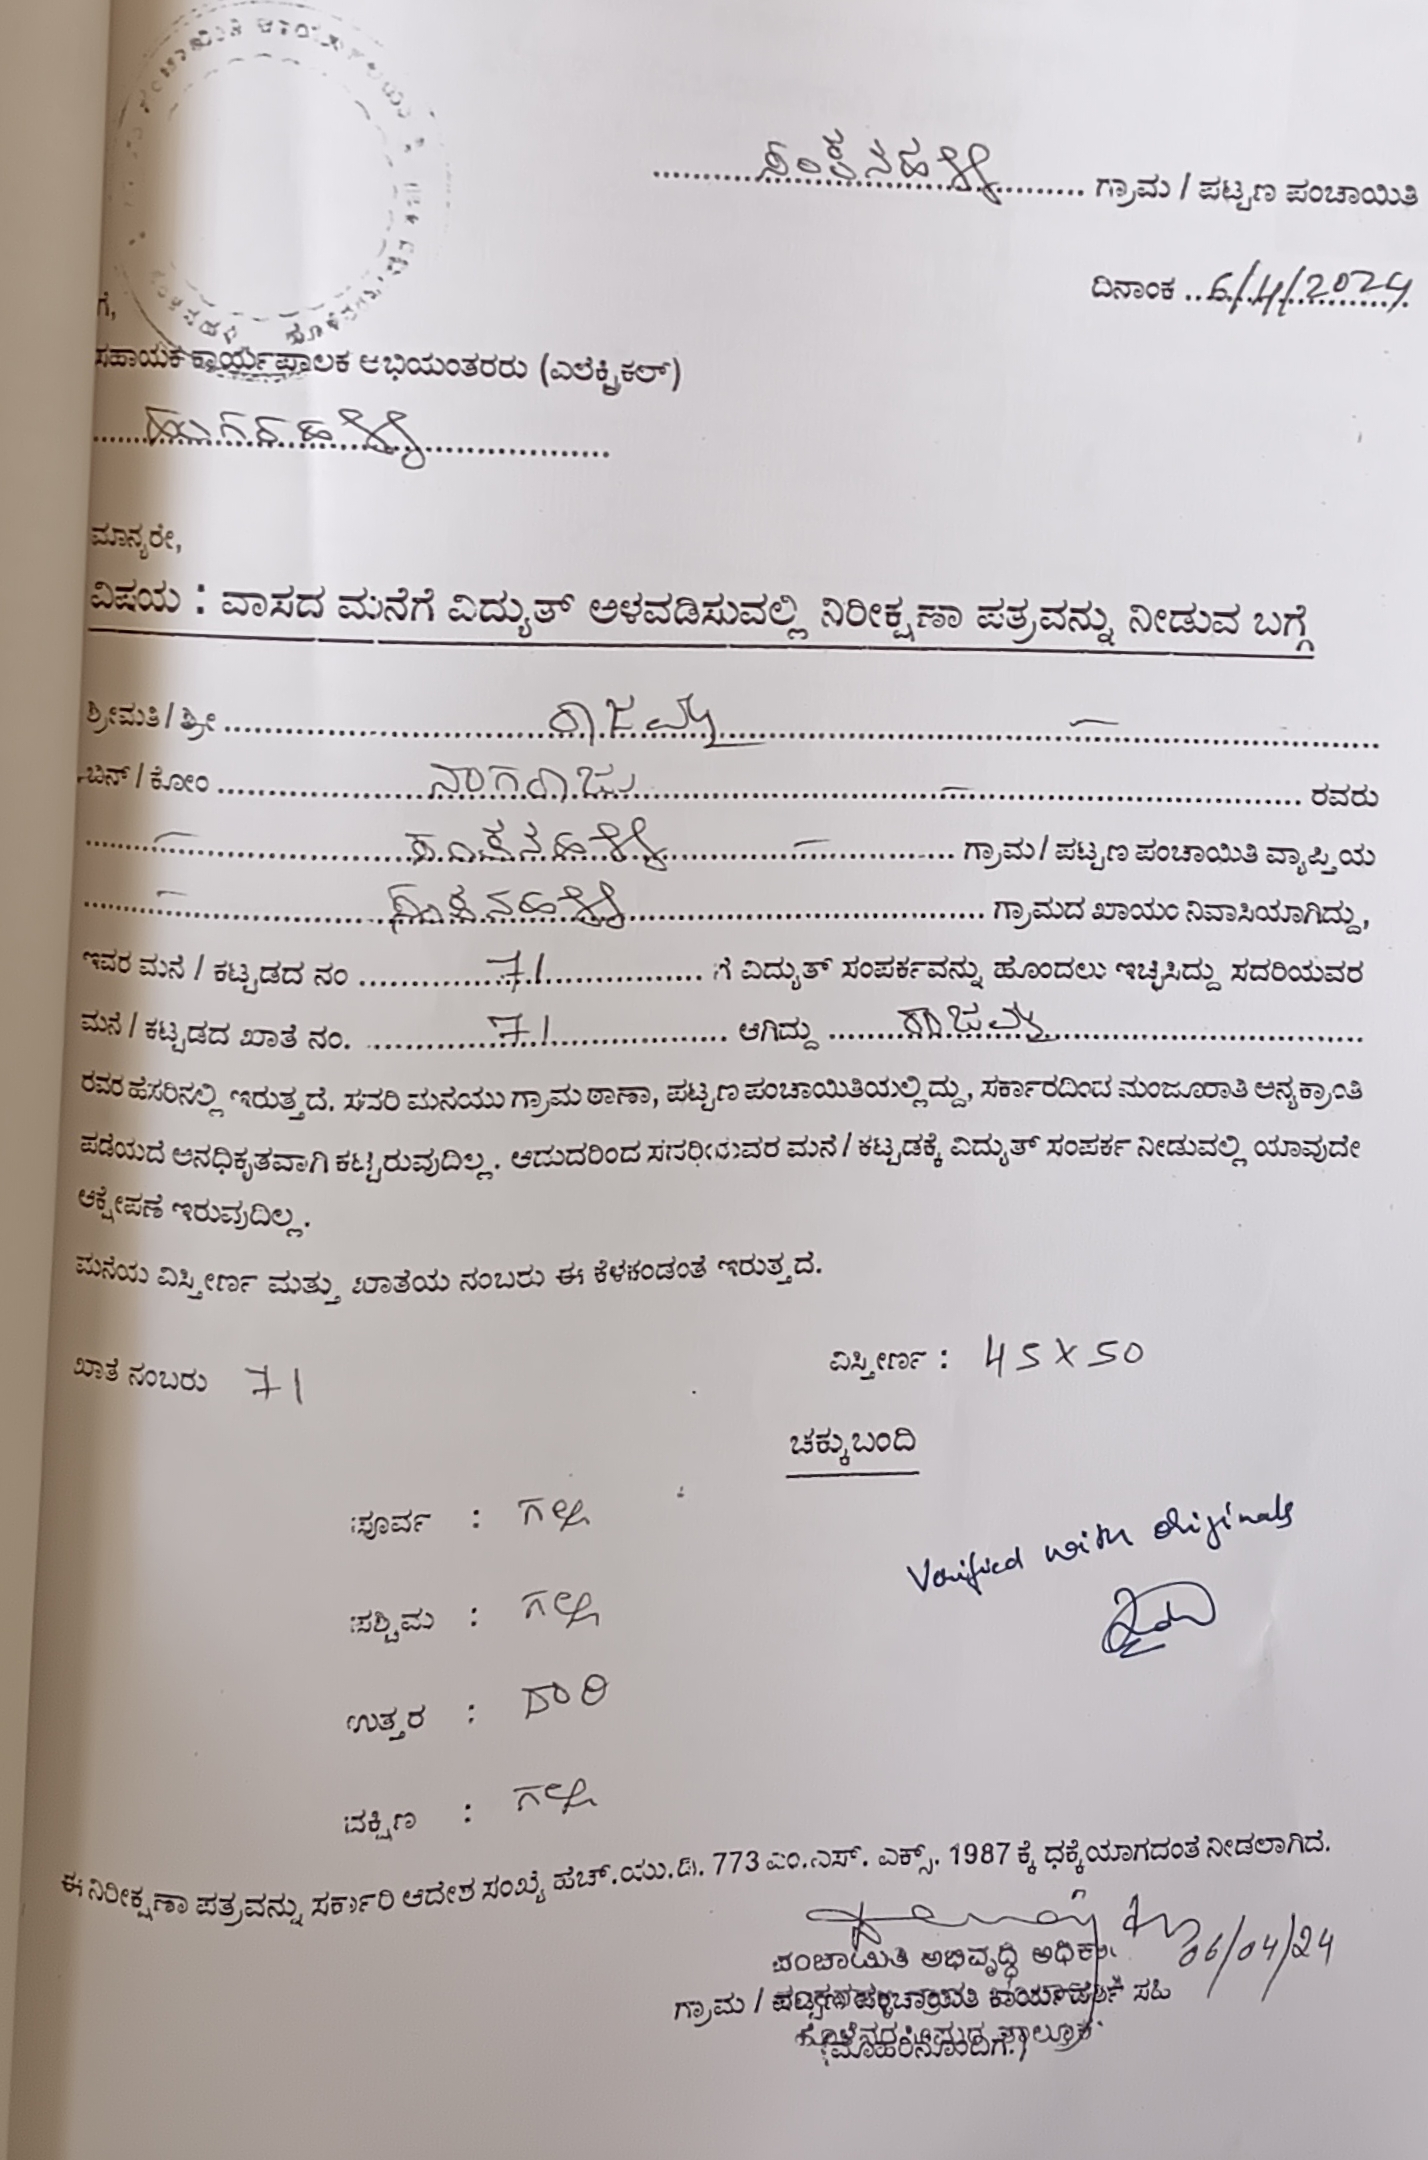 ಗ್ರಾಮ / ಪಟ್ಟಣ ಪಂಚಾಯಿತಿ
ದಿನಾಂಕ 6/4/2024
ಗೆ,
ಸಹಾಯಕ ಕಾರ್ಯಪಾಲಕ ಅಭಿಯಂತರರು (ಎಲೆಕ್ಟ್ರಿಕಲ್)
ಮಾನ್ಯರೇ,
ವಿಷಯ : ವಾಸದ ಮನೆಗೆ ವಿದ್ಯುತ್ ಅಳವಡಿಸುವಲ್ಲಿ ನಿರೀಕ್ಷಣಾ ಪತ್ರವನ್ನು ನೀಡುವ ಬಗ್ಗೆ
ಶ್ರೀಮತಿ / ಶ್ರೀ ರಾಜಮ್ಮ
ಬಿನ್ / ಕೋಂ ನಾಗರಾಜು ರವರು
ಗ್ರಾಮ / ಪಟ್ಟಣ ಪಂಚಾಯಿತಿ ವ್ಯಾಪ್ತಿಯ
ಗ್ರಾಮದ ಖಾಯಂ ನಿವಾಸಿಯಾಗಿದ್ದು,
ಇವರ ಮನೆ / ಕಟ್ಟಡದ ನಂ 71 ಗೆ ವಿದ್ಯುತ್ ಸಂಪರ್ಕವನ್ನು ಹೊಂದಲು ಇಚ್ಛಿಸಿದ್ದು ಸದರಿಯವರ
ಮನೆ / ಕಟ್ಟಡದ ಖಾತೆ ನಂ. 71 ಆಗಿದ್ದು ರಾಜಮ್ಮ
ರವರ ಹೆಸರಿನಲ್ಲಿ ಇರುತ್ತದೆ. ಸದರಿ ಮನೆಯು ಗ್ರಾಮ ಠಾಣಾ, ಪಟ್ಟಣ ಪಂಚಾಯಿತಿಯಲ್ಲಿದ್ದು, ಸರ್ಕಾರದಿಂದ ಮಂಜೂರಾತಿ ಅನ್ಯಕ್ರಾಂತಿ
ಪಡೆಯದೆ ಅನಧಿಕೃತವಾಗಿ ಕಟ್ಟಿರುವುದಿಲ್ಲ. ಆದುದರಿಂದ ಸದರಿಯವರ ಮನೆ / ಕಟ್ಟಡಕ್ಕೆ ವಿದ್ಯುತ್ ಸಂಪರ್ಕ ನೀಡುವಲ್ಲಿ ಯಾವುದೇ
ಆಕ್ಷೇಪಣೆ ಇರುವುದಿಲ್ಲ.
ಮನೆಯ ವಿಸ್ತೀರ್ಣ ಮತ್ತು ಖಾತೆಯ ನಂಬರು ಈ ಕೆಳಕಂಡಂತೆ ಇರುತ್ತದೆ.
ಖಾತೆ ನಂಬರು 71 ವಿಸ್ತೀರ್ಣ : 45 X 50
ಚಕ್ಕುಬಂದಿ
ಪೂರ್ವ : ಗಲ್ಲಿ
Verified with originals
ಪಶ್ಚಿಮ : ಗಲ್ಲಿ
ಉತ್ತರ : ದಾರಿ
ದಕ್ಷಿಣ : ಗಲ್ಲಿ
ಈ ನಿರೀಕ್ಷಣಾ ಪತ್ರವನ್ನು ಸರ್ಕಾರಿ ಆದೇಶ ಸಂಖ್ಯೆ ಹೆಚ್.ಯು.ಡಿ. 773 ಎಂ.ಎನ್. ಎಕ್ಸ್. 1987 ಕ್ಕೆ ಧಕ್ಕೆಯಾಗದಂತೆ ನೀಡಲಾಗಿದೆ.
06/04/24
ಪಂಚಾಯಿತಿ ಅಭಿವೃದ್ಧಿ ಅಧಿಕಾರಿ
ಗ್ರಾಮ / ಪಟ್ಟಣ ಪಂಚಾಯಿತಿ ಕಾರ್ಯದರ್ಶಿ ಸಹಿ
(ಮೊಹರಿನೊಂದಿಗೆ.)